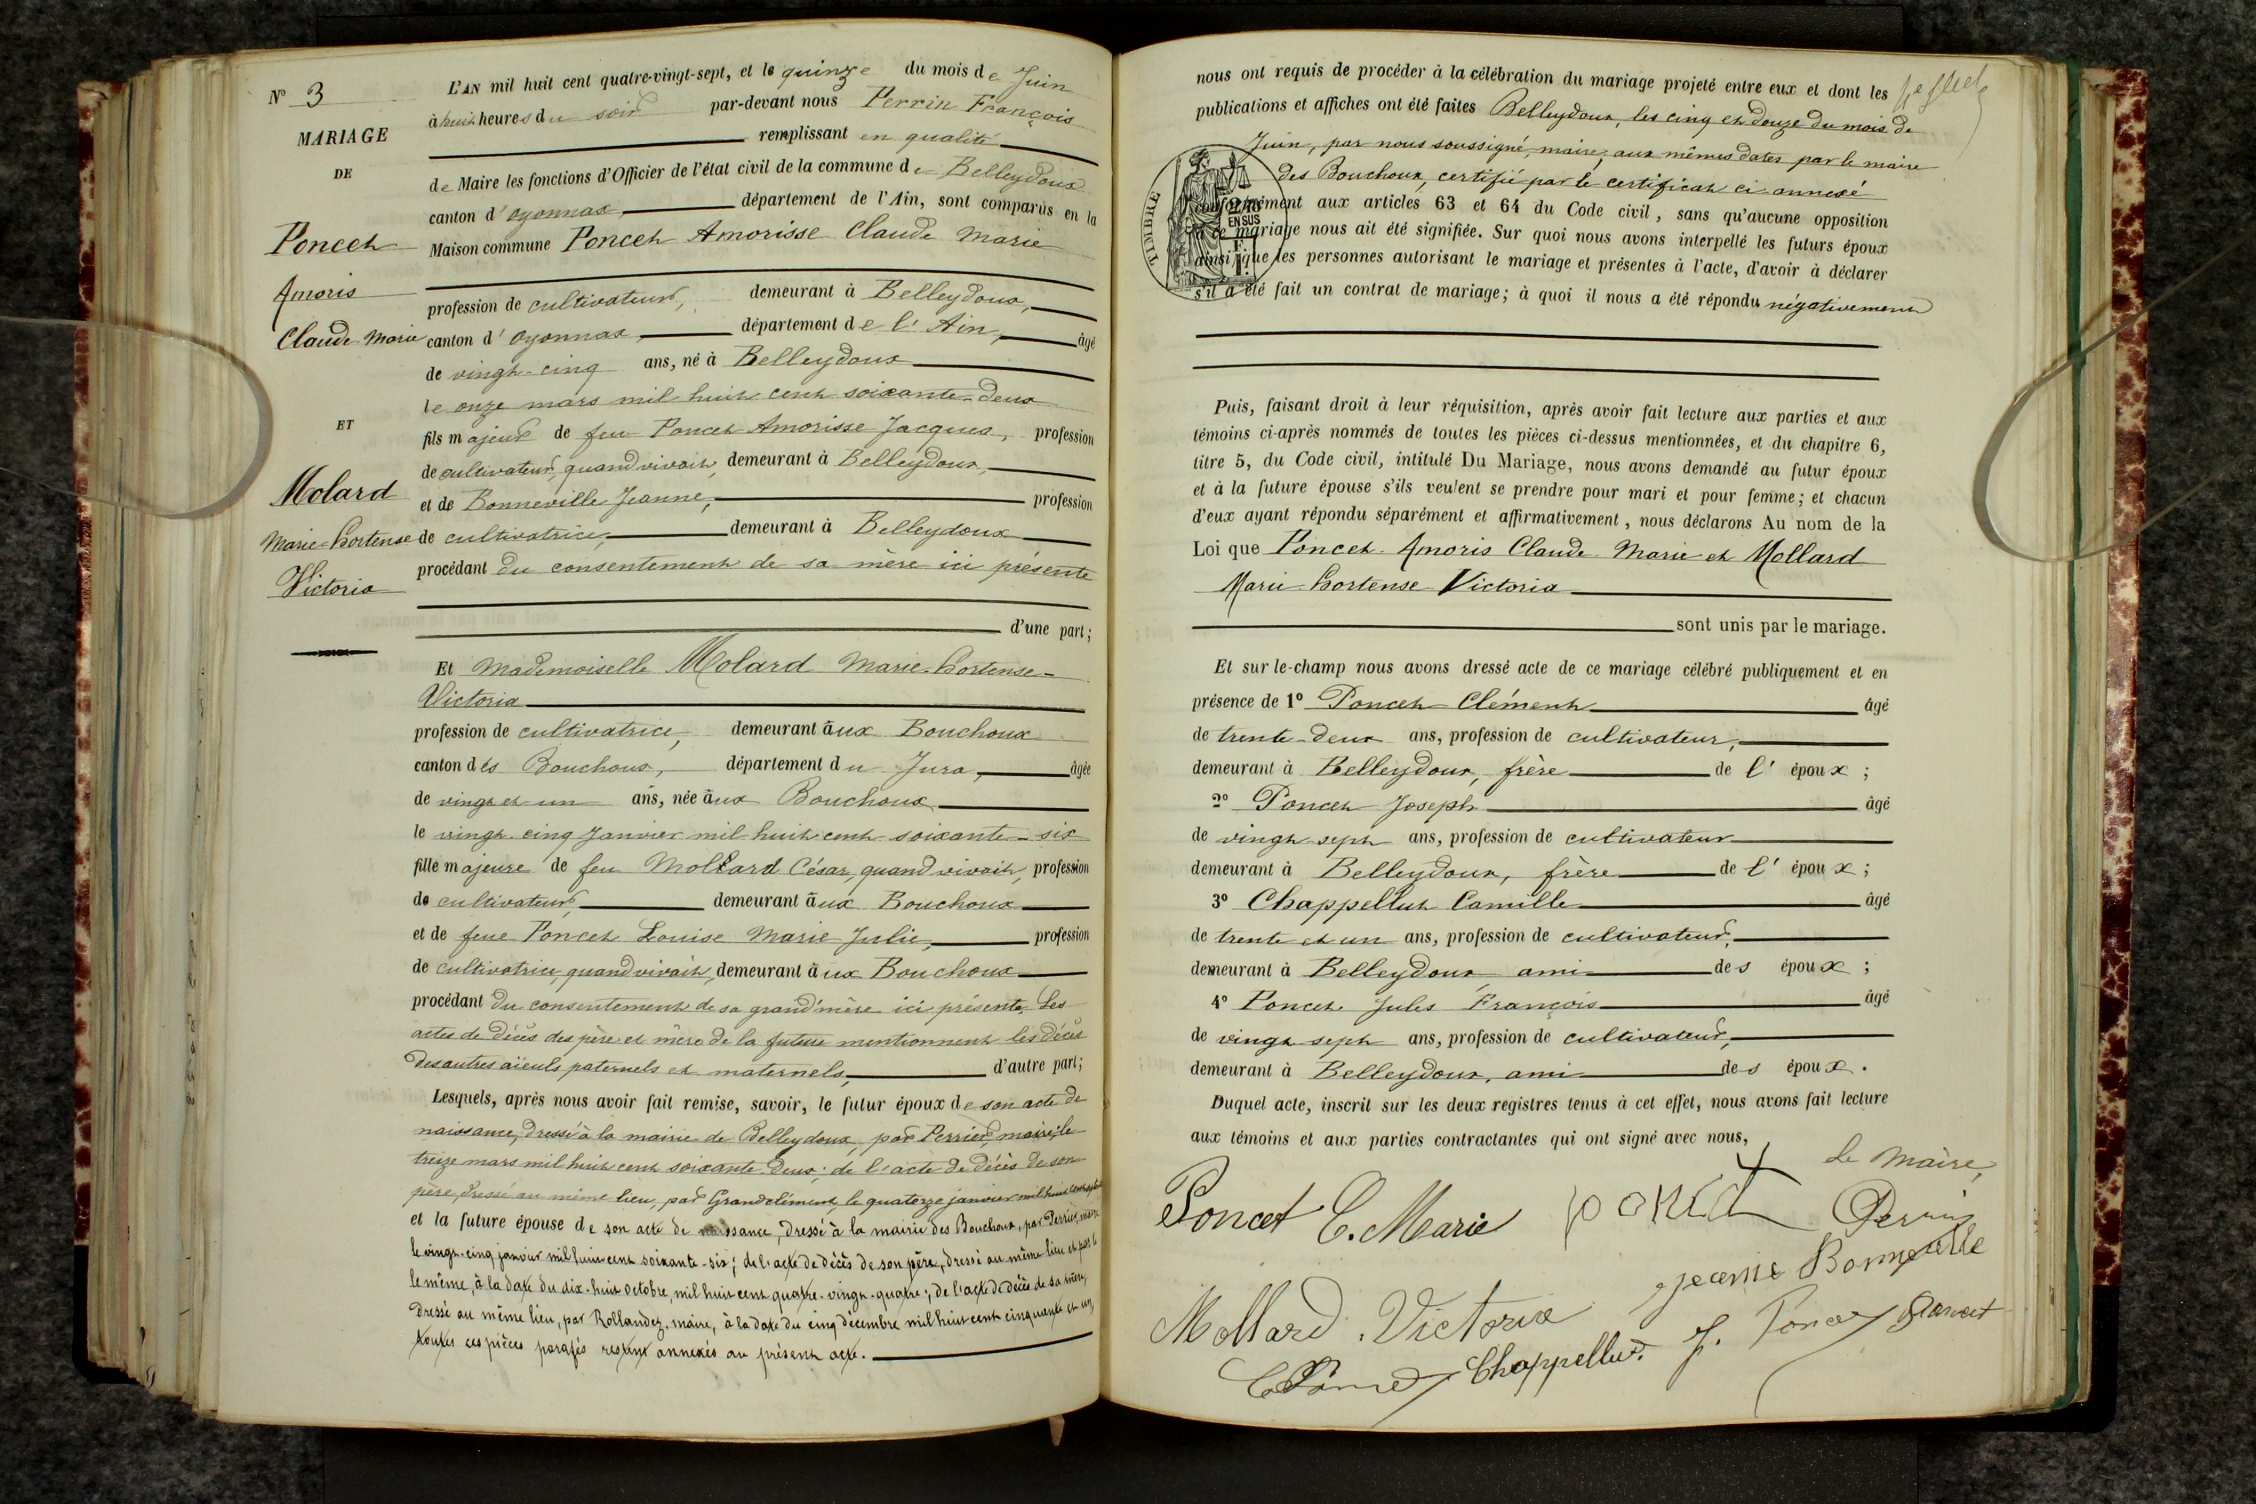 N° 3
MARIAGE
DE
Poncet
Amoris
Claude Marie
ET
Molard
Marie-Hortense
Victoria
L'AN mil huit cent quatre-vingt-sept, et le quinze du mois de Juin
à huit heures du soir par-devant nous Perrin François
remplissant en qualité
de Maire les fonctions d'Officier de l'état civil de la commune de Belleydoux
canton d'Oyonnax, département de l'Ain, sont comparus en la
Maison commune Poncet Amorisse Claude Marie
profession de cultivateur, demeurant à Belleydoux,
canton d'Oyonnax, département de l'Ain, âgé
de vingt-cinq ans, né à Belleydoux
le onze mars mil huit cent soixante-deux
fils majeur de feu Poncet Amorisse Jacques, profession
de cultivateur, quand vivait, demeurant à Belleydoux,
et de Bonneville Jeanne, profession
de cultivatrice, demeurant à Belleydoux
procédant du consentement de sa mère ici présente
d'une part;
Et Mademoiselle Molard Marie-Hortense-
Victoria
profession de cultivatrice, demeurant aux Bouchoux
canton des Bouchoux, département du Jura, âgée
de vingt et un ans, née aux Bouchoux
le vingt-cinq Janvier mil huit cent soixante-six
fille majeure de feu Mollard César, quand vivait, profession
de cultivateur, demeurant aux Bouchoux
et de feue Poncet Louise Marie Julie, profession
de cultivatrice, quand vivait, demeurant aux Bouchoux
procédant du consentement de sa grand'mère ici présente. Les
actes de décès des père et mère de la future mentionnent les décès
des autres aïeuls paternels et maternels, d'autre part;
Lesquels, après nous avoir fait remise, savoir, le futur époux de son acte de
naissance, dressé à la mairie de Belleydoux, par Perrier, maire, le
treize mars mil huit cent soixante-deux; de l'acte de décès de son
père, dressé au même lieu, par Grandclément, le quatorze janvier mil huit cent
et la future épouse de son acte de naissance, dressé à la mairie des Bouchoux, par Perrier, maire
le vingt-cinq janvier mil huit cent soixante-six; de l'acte de décès de son père, dressé au même lieu et par le
le même, à la date du dix-huit octobre, mil huit cent quatre-vingt-quatre; de l'acte de décès de sa mère,
dressé au même lieu, par Rollandez, maire, à la date du cinq décembre mil huit cent cinquante et un,
toutes ces pièces parafés restent annexés au présent acte.
nous ont requis de procéder à la célébration du mariage projeté entre eux et dont les
publications et affiches ont été faites Belleydoux, les cinq et douze du mois de
Juin, par nous soussigné, maire, aux mêmes dates par le maire
des Bouchoux, certifié par le certificat ci-annexé
TIMBRE
2/10
EN SUS
conformément aux articles 63 et 64 du Code civil, sans qu'aucune opposition
à ce mariage nous ait été signifiée. Sur quoi nous avons interpellé les futurs époux
ainsi que les personnes autorisant le mariage et présentes à l'acte, d'avoir à déclarer
s'il a été fait un contrat de mariage; à quoi il nous a été répondu négativement
Puis, faisant droit à leur réquisition, après avoir fait lecture aux parties et aux
témoins ci-après nommés de toutes les pièces ci-dessus mentionnées, et du chapitre 6,
titre 5, du Code civil, intitulé Du Mariage, nous avons demandé au futur époux
et à la future épouse s'ils veulent se prendre pour mari et pour femme; et chacun
d'eux ayant répondu séparément et affirmativement, nous déclarons Au nom de la
Loi que Poncet Amoris Claude Marie et Mollard
Marie Hortense Victoria
sont unis par le mariage.
Et sur-le-champ nous avons dressé acte de ce mariage célébré publiquement et en
présence de 1° Poncet Clément âgé
de trente-deux ans, profession de cultivateur,
demeurant à Belleydoux, frère de l'époux;
2° Poncet Joseph âgé
de vingt-sept ans, profession de cultivateur
demeurant à Belleydoux, frère de l'époux;
3° Chappellut Camille âgé
de trente et un ans, profession de cultivateur,
demeurant à Belleydoux ami des époux;
4° Poncet Jules François âgé
de vingt sept ans, profession de cultivateur,
demeurant à Belleydoux, ami des époux.
Duquel acte, inscrit sur les deux registres tenus à cet effet, nous avons fait lecture
aux témoins et aux parties contractantes qui ont signé avec nous,
le Maire,
Poncet C. Marie poncet Perrin
Mollard Victoria Jeanne Bonneville
C Poncet Chappellut J. Poncet Poncet